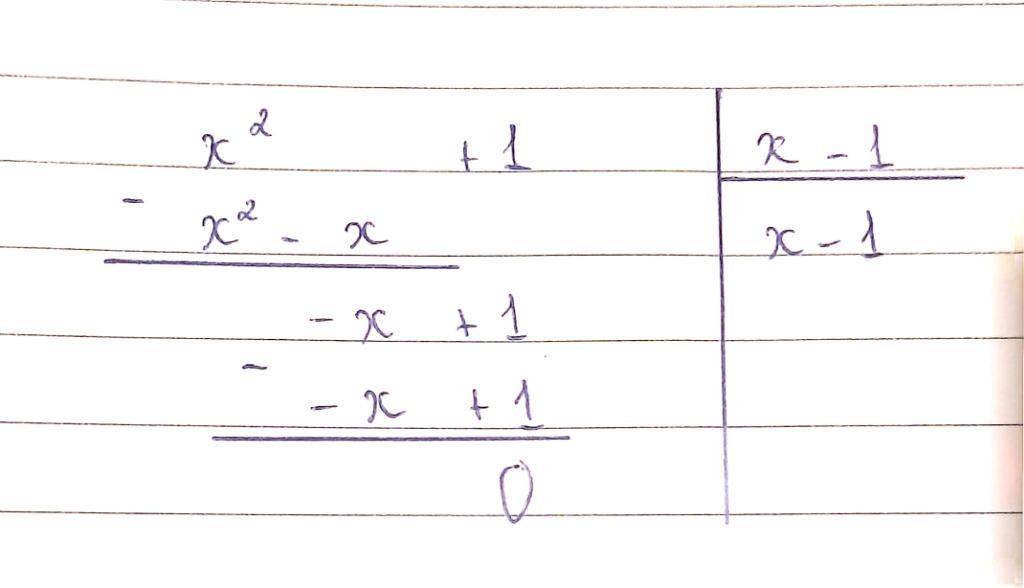 x² + 1 | x - 1
-
x² - x | x - 1
- x + 1
-
- x + 1
0